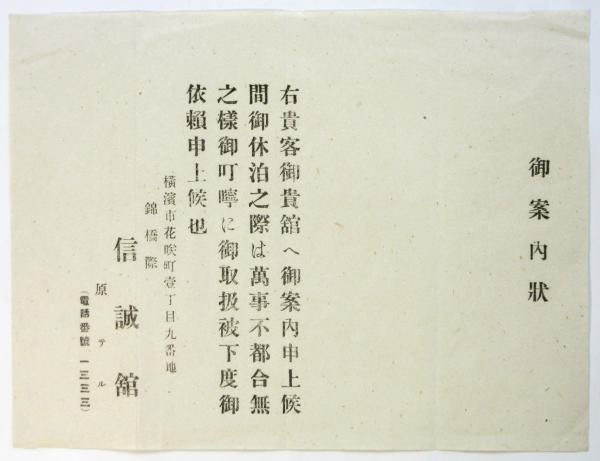 御案內狀
右貴客御貴舘へ御案內申上候
間御休泊之際は萬事不都合無
之樣御叮嚀に御取扱被下度御
依賴申上候也
橫濱市花咲町壹丁目九番地
錦橋際
信誠舘
原テル
(電話番號一三三三)